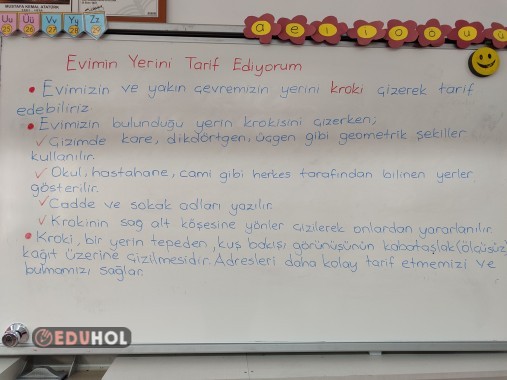 MUSTAFA KEMAL ATATÜRK
Uu Üü Vv Yy Zz
25 26 27 28 29
a e ı i o ö u ü
Evimin Yerini Tarif Ediyorum
• Evimizin ve yakın çevremizin yerini kroki çizerek tarif
edebiliriz.
• Evimizin bulunduğu yerin krokisini çizerken;
✓ Çizimde kare, dikdörtgen, üçgen gibi geometrik şekiller
kullanılır.
✓ Okul, hastahane, cami gibi herkes tarafından bilinen yerler
gösterilir.
✓ Cadde ve sokak adları yazılır.
✓ Krokinin sağ alt köşesine yönler çizilerek onlardan yararlanılır.
• Kroki, bir yerin tepeden, kuş bakışı görünüşünün kabataslak (ölçüsüz)
kağıt üzerine çizilmesidir. Adresleri daha kolay tarif etmemizi ve
bulmamızı sağlar.
EDUHOL